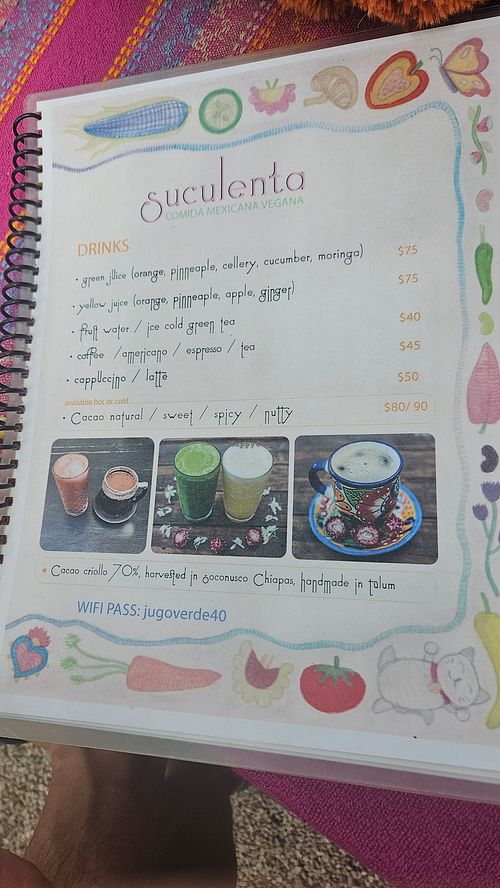 suculenta
COMIDA MEXICANA VEGANA
DRINKS
• green juice (orange, pinneaple, cellery, cucumber, moringa) $75
• yellow juice (orange, pinneaple, apple, ginger) $75
• fruit water / ice cold green tea $40
• coffee / americano / espresso / tea $45
• cappuccino / latte $50
available hot or cold
• Cacao natural / sweet / spicy / nutty $80/ 90
* Cacao criollo 70%, harvested in soconusco Chiapas, handmade in tulum
WIFI PASS: jugoverde40